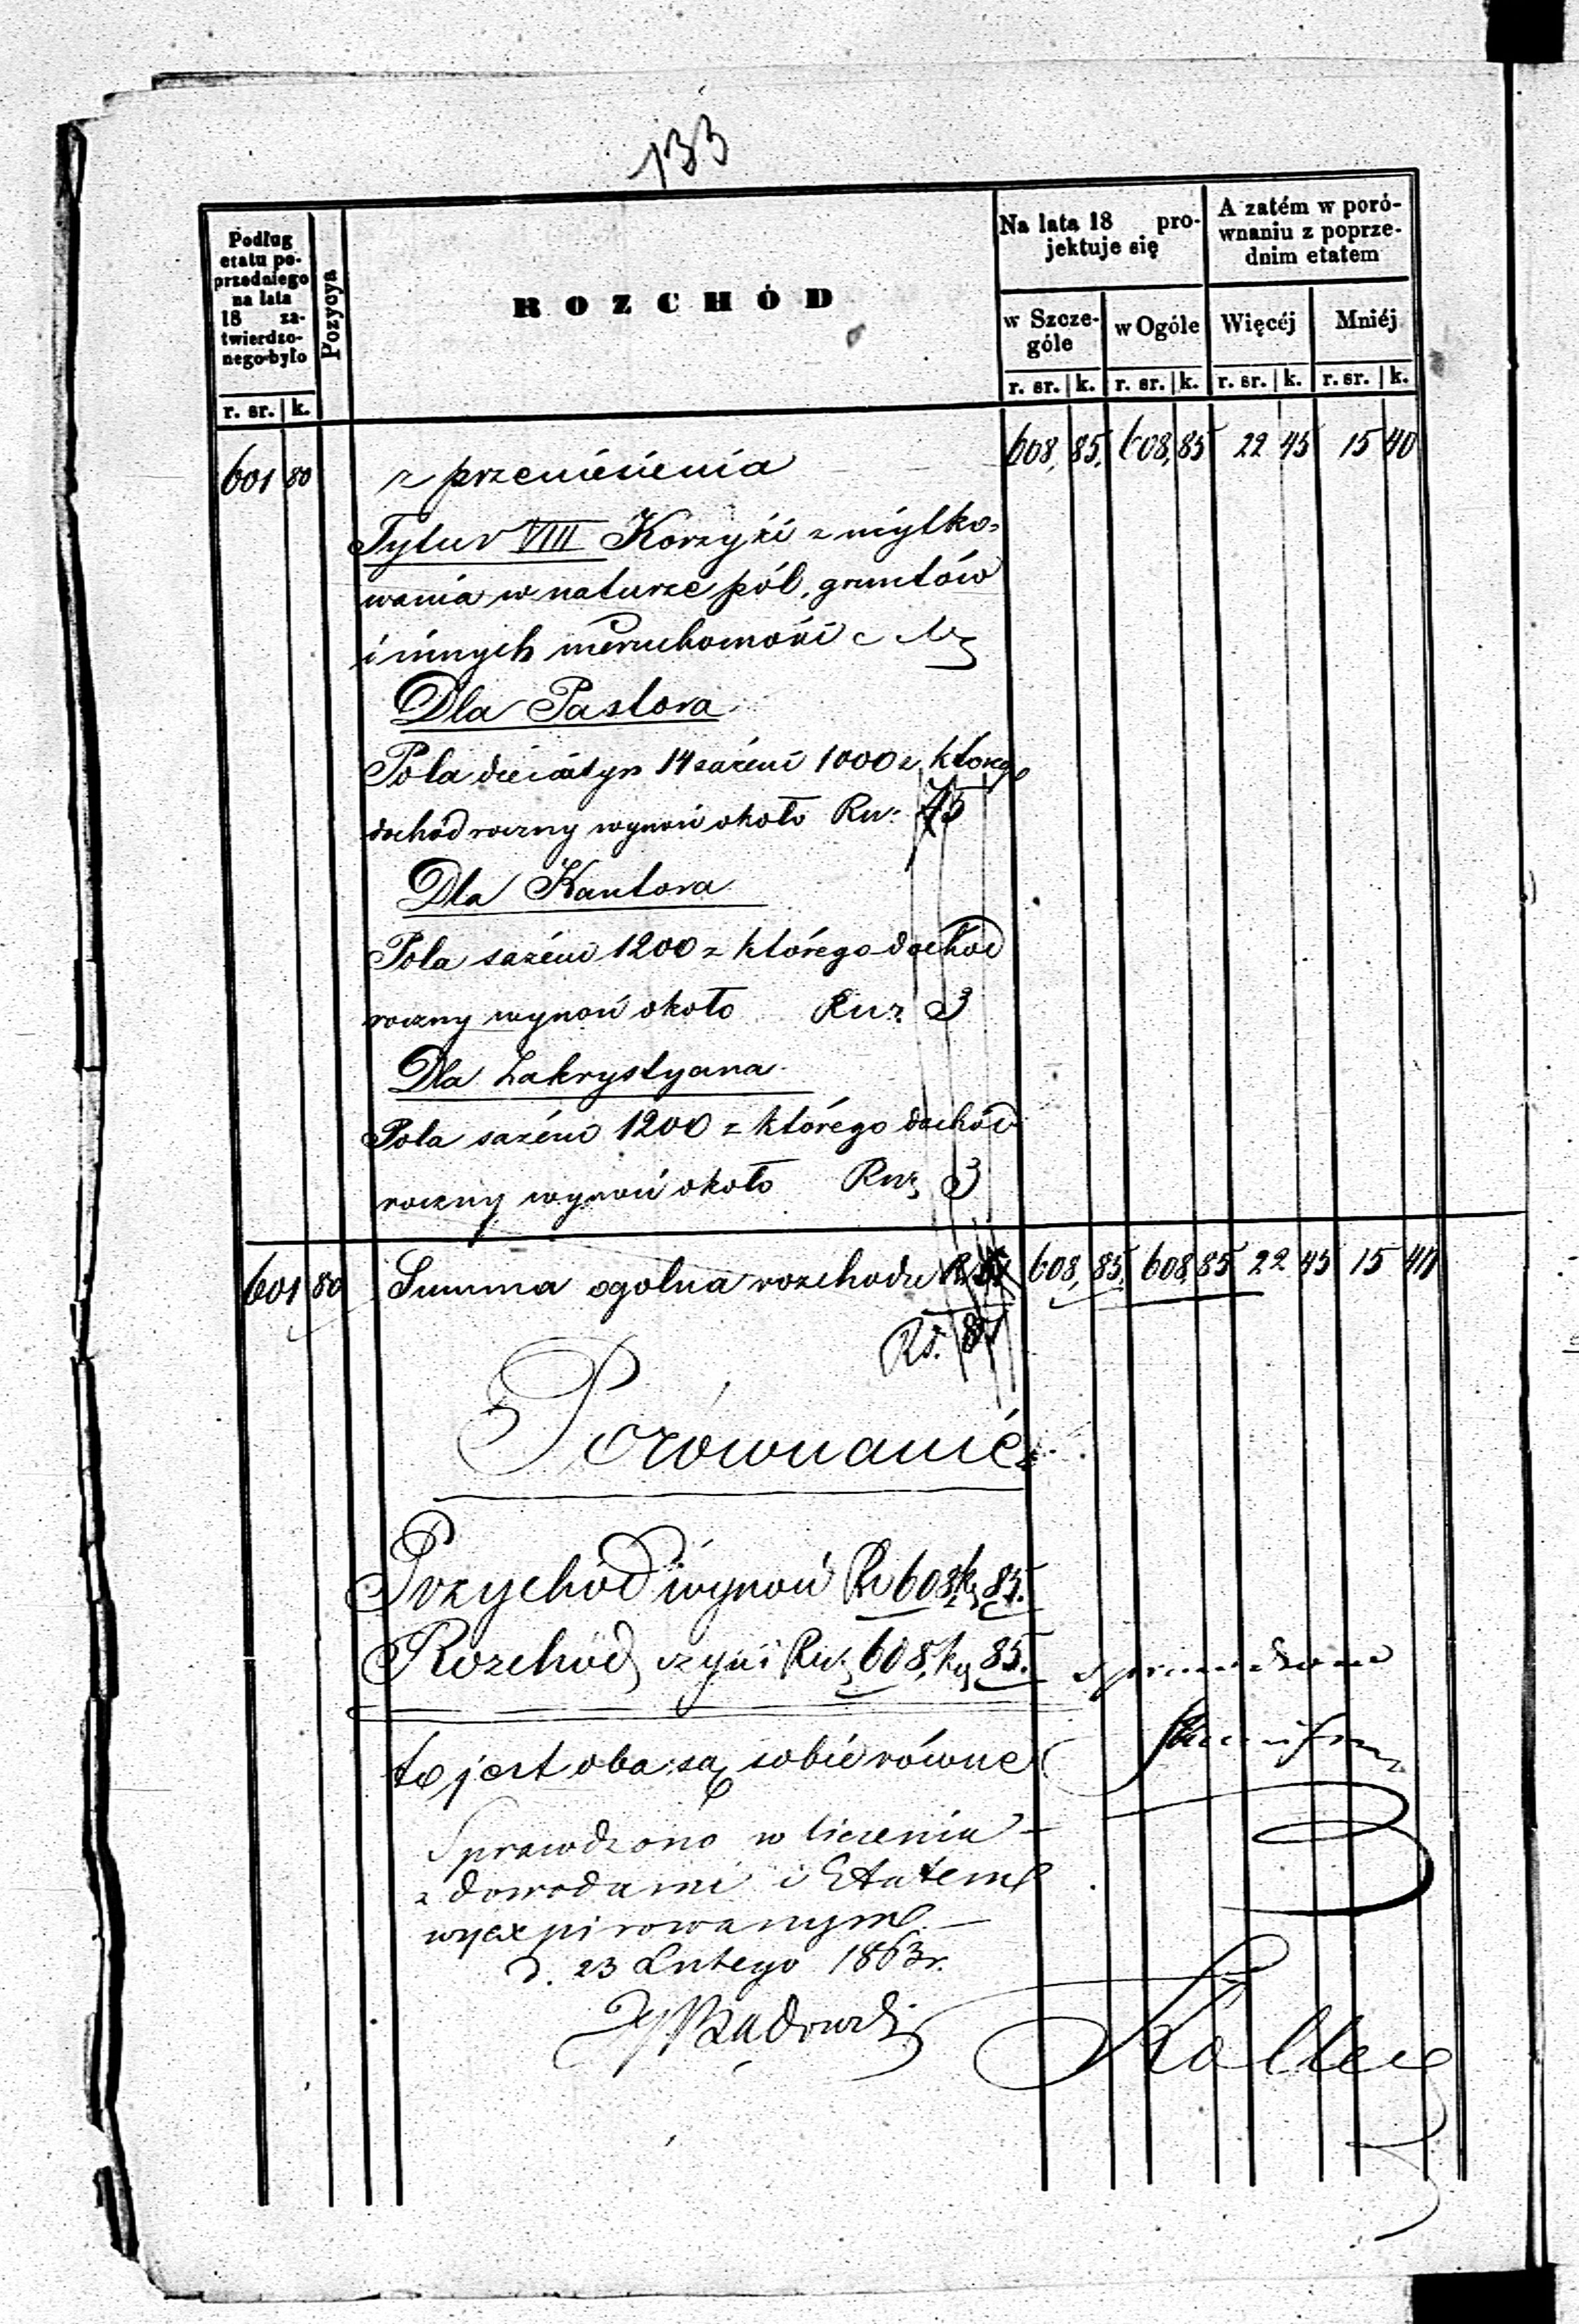 133
Podług
etatu po-
przedniego
na lata
18 za-
twierdzo-
nego było
r. sr. k.
Pozycya
ROZCHÓD
Na lata 18 pro-
jektuje się
w Szcze-
góle
w Ogóle
r. sr. k. r. sr. k.
A zatém w poró-
wnaniu z poprze-
dnim etatem
Więcéj Mniéj
r. sr. k. r. sr. k.
601 80 z przeniesienia 608, 85, 608, 85 22 45 15 40
Tytuł VIII Korzyści z użytko-
wania w naturze pól, gruntów
i innych nieruchomości
Dla Pastora
Pola diesiatyn 14 sażeni 1000 z którego
dochód roczny wynosi około Rsr. 75
Dla Kantora
Pola sażeni 1200 z którego dochód
roczny wynosi około Rsr. 3
Dla Zakrystyana
Pola sażeni 1200 z którego dochód
roczny wynosi około Rsr. 3
601 80 Summa ogolna rozchodu 608, 85, 608,85 22 45 15 40
Rs. 81
Porównanie
Przychód wynosi Rs 608, k. 85.
Rozchód czyni Rsr. 608, k. 85.
to jest oba są sobie równe
sprawdzone
Sprawdzono w liczeniu
z dowodami i Etatem
wyexpirowanym.
d. 23 Lutego 1863 r.